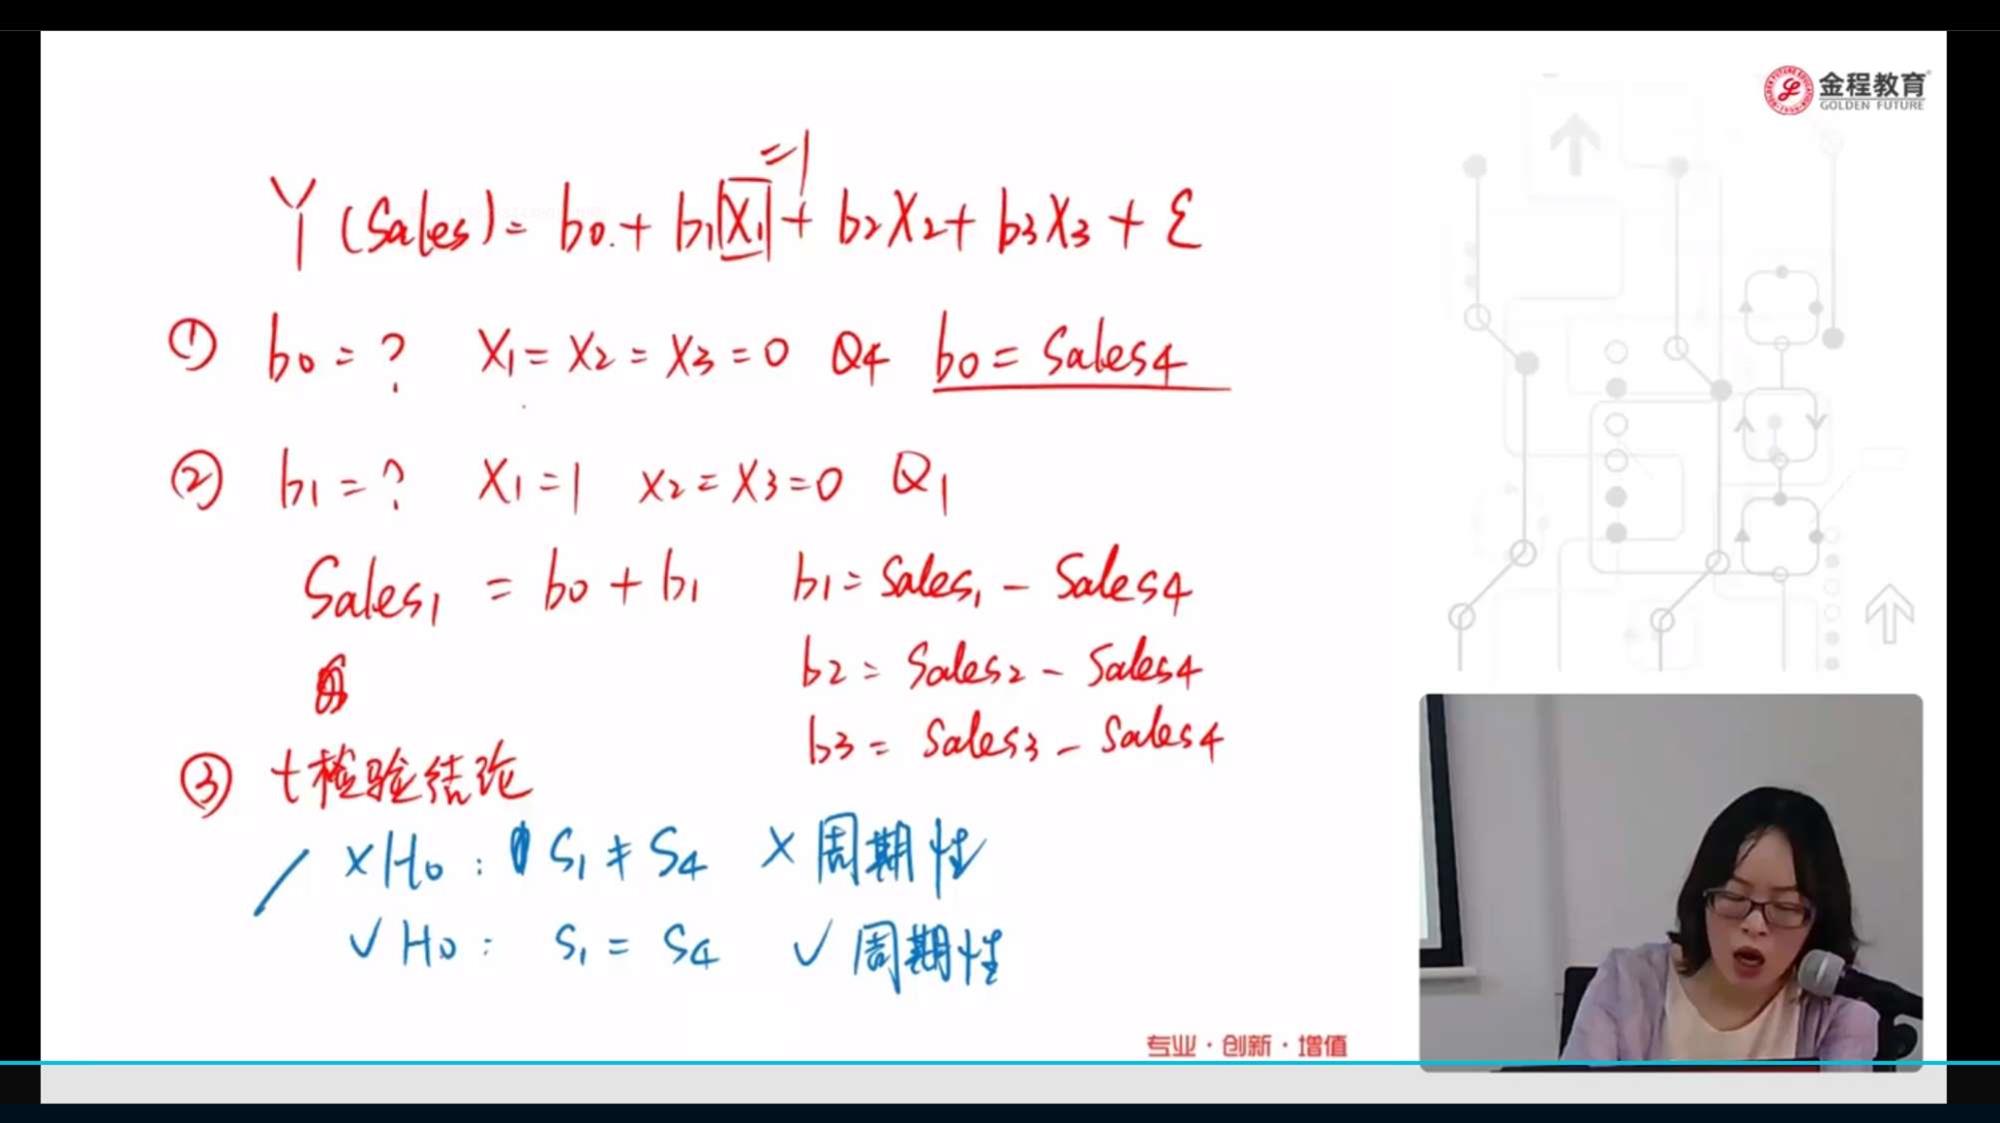 金程教育
GOLDEN FUTURE
=1
Y (Sales) = b0 + b1 X1 + b2 X2 + b3 X3 + ε
① b0 = ? X1 = X2 = X3 = 0 Q4 b0 = Sales4
② b1 = ? X1 = 1 X2 = X3 = 0 Q1
Sales1 = b0 + b1 b1 = Sales1 - Sales4
b2 = Sales2 - Sales4
b3 = Sales3 - Sales4
③ t检验结论
× H0 : S1 ≠ S4 × 周期性
✓ H0 : S1 = S4 ✓ 周期性
专业·创新·增值